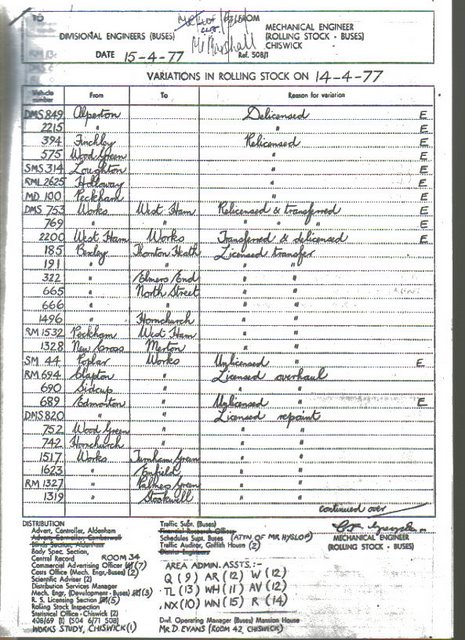 TO
FROM
DIVISIONAL ENGINEERS (BUSES)
MECHANICAL ENGINEER
(ROLLING STOCK - BUSES)
CHISWICK
Mr Marshall
DATE 15-4-77
Ref. 508/1
VARIATIONS IN ROLLING STOCK ON 14-4-77
Vehicle number From To Reason for variation
DMS 849 Alperton Delicensed E
2215 " " E
394 Finchley Relicensed E
575 Wood Green " E
SMS 314 Loughton " E
RML 2625 Holloway " E
MD 100 Peckham " E
DMS 753 Works West Ham Relicensed & transferred E
769 " " " " E
2200 West Ham Works Transferred & delicensed E
185 Bexley Thornton Heath Licensed transfer
191 " " " "
322 " Elmers End " "
665 " North Street " "
666 " " " "
1496 " Hornchurch " "
RM 1532 Peckham West Ham " "
1328 New Cross Merton " "
SM 44 Poplar Works Unlicensed " E
RM 694 Clapton " Licensed overhaul
690 Sidcup " " "
689 Edmonton " Unlicensed " E
DMS 820 " " Licensed repaint
752 Wood Green " " "
742 Hornchurch " " "
1517 Works Turnham Green " "
1623 " Enfield " "
RM 1327 " Palmers Green " "
1319 " Stockwell " "
continued over
MECHANICAL ENGINEER
(ROLLING STOCK - BUSES)
DISTRIBUTION
Advert. Controller, Aldenham
Advert. Controller Camberwell
Body Spec. Section,
Central Record ROOM 34
Commercial Advertising Officer (7)
Costs Office (Mech. Engr. Buses) (2)
Scientific Adviser (2)
Distribution Services Manager
Mech. Engr. (Development - Buses) (3)
R. S. Licensing Section (5)
Rolling Stock Inspection
Statistical Office - Chiswick (2)
408/69 (1) (504 6/71 508)
WORKS STUDY, CHISWICK (1)
Traffic Supt. (Buses)
Financial Research Officer
Schedules Supt. Buses (ATTN OF MR HYSLOP)
Traffic Auditor, Griffith House (2)
District Engineers
AREA ADMIN. ASSTS:-
Q (9) AR (12) W (12)
TL (13) WH (11) AV (12)
NX (10) WN (15) R (14)
Divl. Operating Manager (Buses) Mansion House
MR D. EVANS (ROOM 42, CHISWICK)